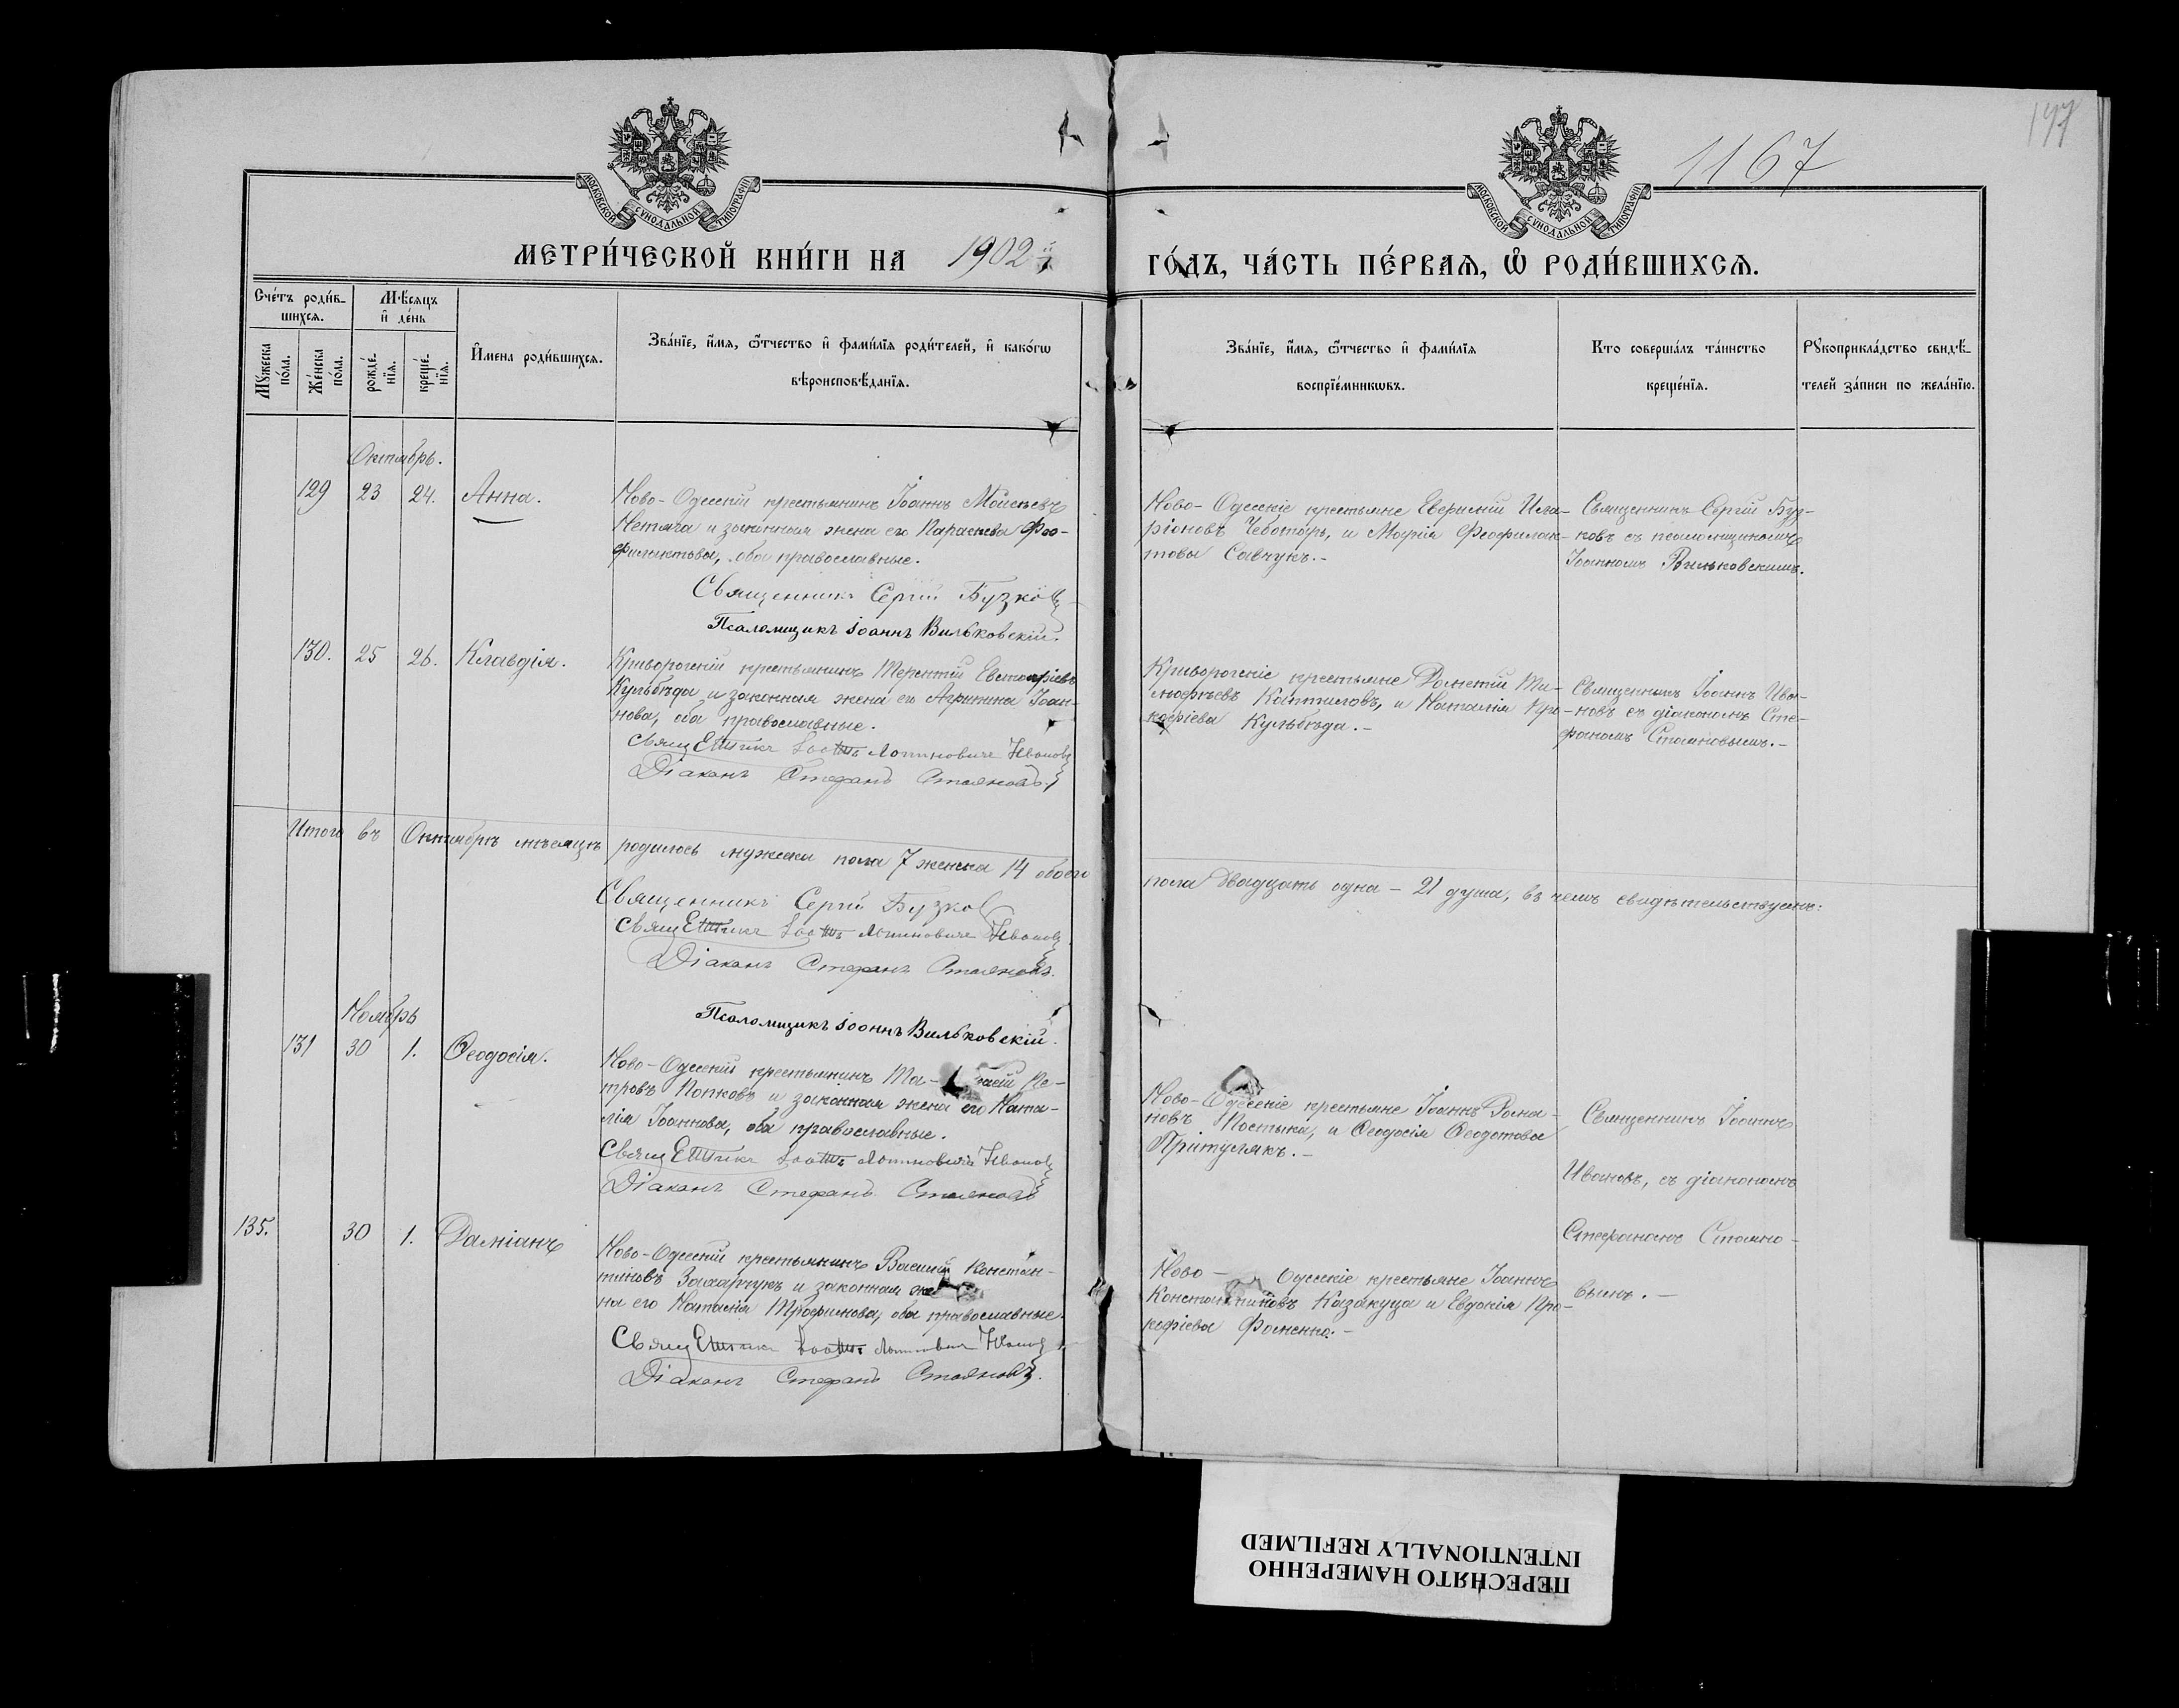 177
1167
МОСКОВСКОЙ СУНОДАЛЬНОЙ ТИПОГРАФІИ
МОСКОВСКОЙ СУНОДАЛЬНОЙ ТИПОГРАФІИ
МЕТРИ́ЧЕСКОЙ КНИ́ГИ НА 1902 й
ГО́ДЪ, ЧА́СТЬ ПЕ́РВАЯ, Ѽ РОДИ́ВШИХСЯ.
Сче́тъ роди́в-
шихся.
Мѣ́сяцъ
и҆ де́нь
Мꙋ́жеска
по́ла.
Же́нска
по́ла.
рожде́-
нїя.
креще́-
нїя.
И҆мена роди́вшихся.
Зва́нїе, и҆́мя, ѻ҆́тчество и҆ фами́лїя роди́телей, и҆ како́гѡ
вѣроисповѣ́данїя.
Зва́нїе, и҆́мя, ѻ҆́тчество и҆ фами́лїя
воспрїе́мникѡвъ.
Кто соверша́лъ та́инство
креще́нїя.
Рꙋкоприкла́дство свидѣ́-
телей за́писи по жела́нїю.
Октябрь.
129 23 24. Анна.
Ново-Одесскій крестьянинъ Іоаннъ Моисеевъ
Нетяга и законная жена его Параскева Фео-
филактова, оба православные.
Священникъ Сергій Бузковъ
Псаломщикъ Іоаннъ Вильковскій.
Ново-Одесскіе крестьяне Евгеній Ила-
ріоновъ Чеботарь, и Марія Феофилак-
това Савчукъ.-
Священникъ Сергій Буз-
ковъ съ псаломщикомъ
Іоанномъ Вильковскимъ.
130. 25 26. Клавдія.
Криворогскій крестьянинъ Терентій
Кульбѣда и законная жена его Агрипина Іоан-
нова, оба православные.
Іоаннъ Логиновичъ Ивановъ
Діаконъ Стефанъ Стояновъ
Криворогскіе крестьяне
и Наталія Про-
кофіева Кульбѣда.-
Священникъ Іоаннъ Ива-
новъ съ діакономъ Сте-
фаномъ Стояновымъ.-
Итого въ Октябрѣ мѣсяцѣ родилось мужска пола 7 женска 14 обоего
пола двадцать одна - 21 душа, въ чемъ свидѣтельствуемъ:
Священникъ Сергій Бузков
Іоаннъ Логиновичъ Ивановъ
Діаконъ Стефанъ Стояновъ.
Псаломщикъ Іоаннъ Вильковскій.
Ноябрь
131 30 1. Ѳеодосія.
Ново-Одесскій крестьянинъ Пе-
тровъ Попковъ и законная жена его Ната-
лія Іоаннова, оба православные.
Іоаннъ Логиновичъ Ивановъ
Діаконъ Стефанъ Стояновъ
Ново-Одесскіе крестьяне Іоаннъ Рома-
новъ Постыка, и Ѳеодосія Ѳеодотова
Притулякъ.-
Священникъ Іоаннъ
Ивановъ, съ діакономъ
Стефаномъ Стояно-
вымъ.-
135. 30 1. Даміанъ
Ново-Одесскій крестьянинъ Василій Констан-
тиновъ Захарчукъ и законная же
на его Наталія Трофимова, оба православные.
Іоаннъ Логиновичъ Ивановъ
Діаконъ Стефанъ Стояновъ.
Ново- Одесскіе крестьяне Іоаннъ
Константиновъ Казакуца и Евдокія Про-
кофіева Фоменко.-
ПЕРЕСНЯТО НАМЕРЕННО
INTENTIONALLY REFILMED